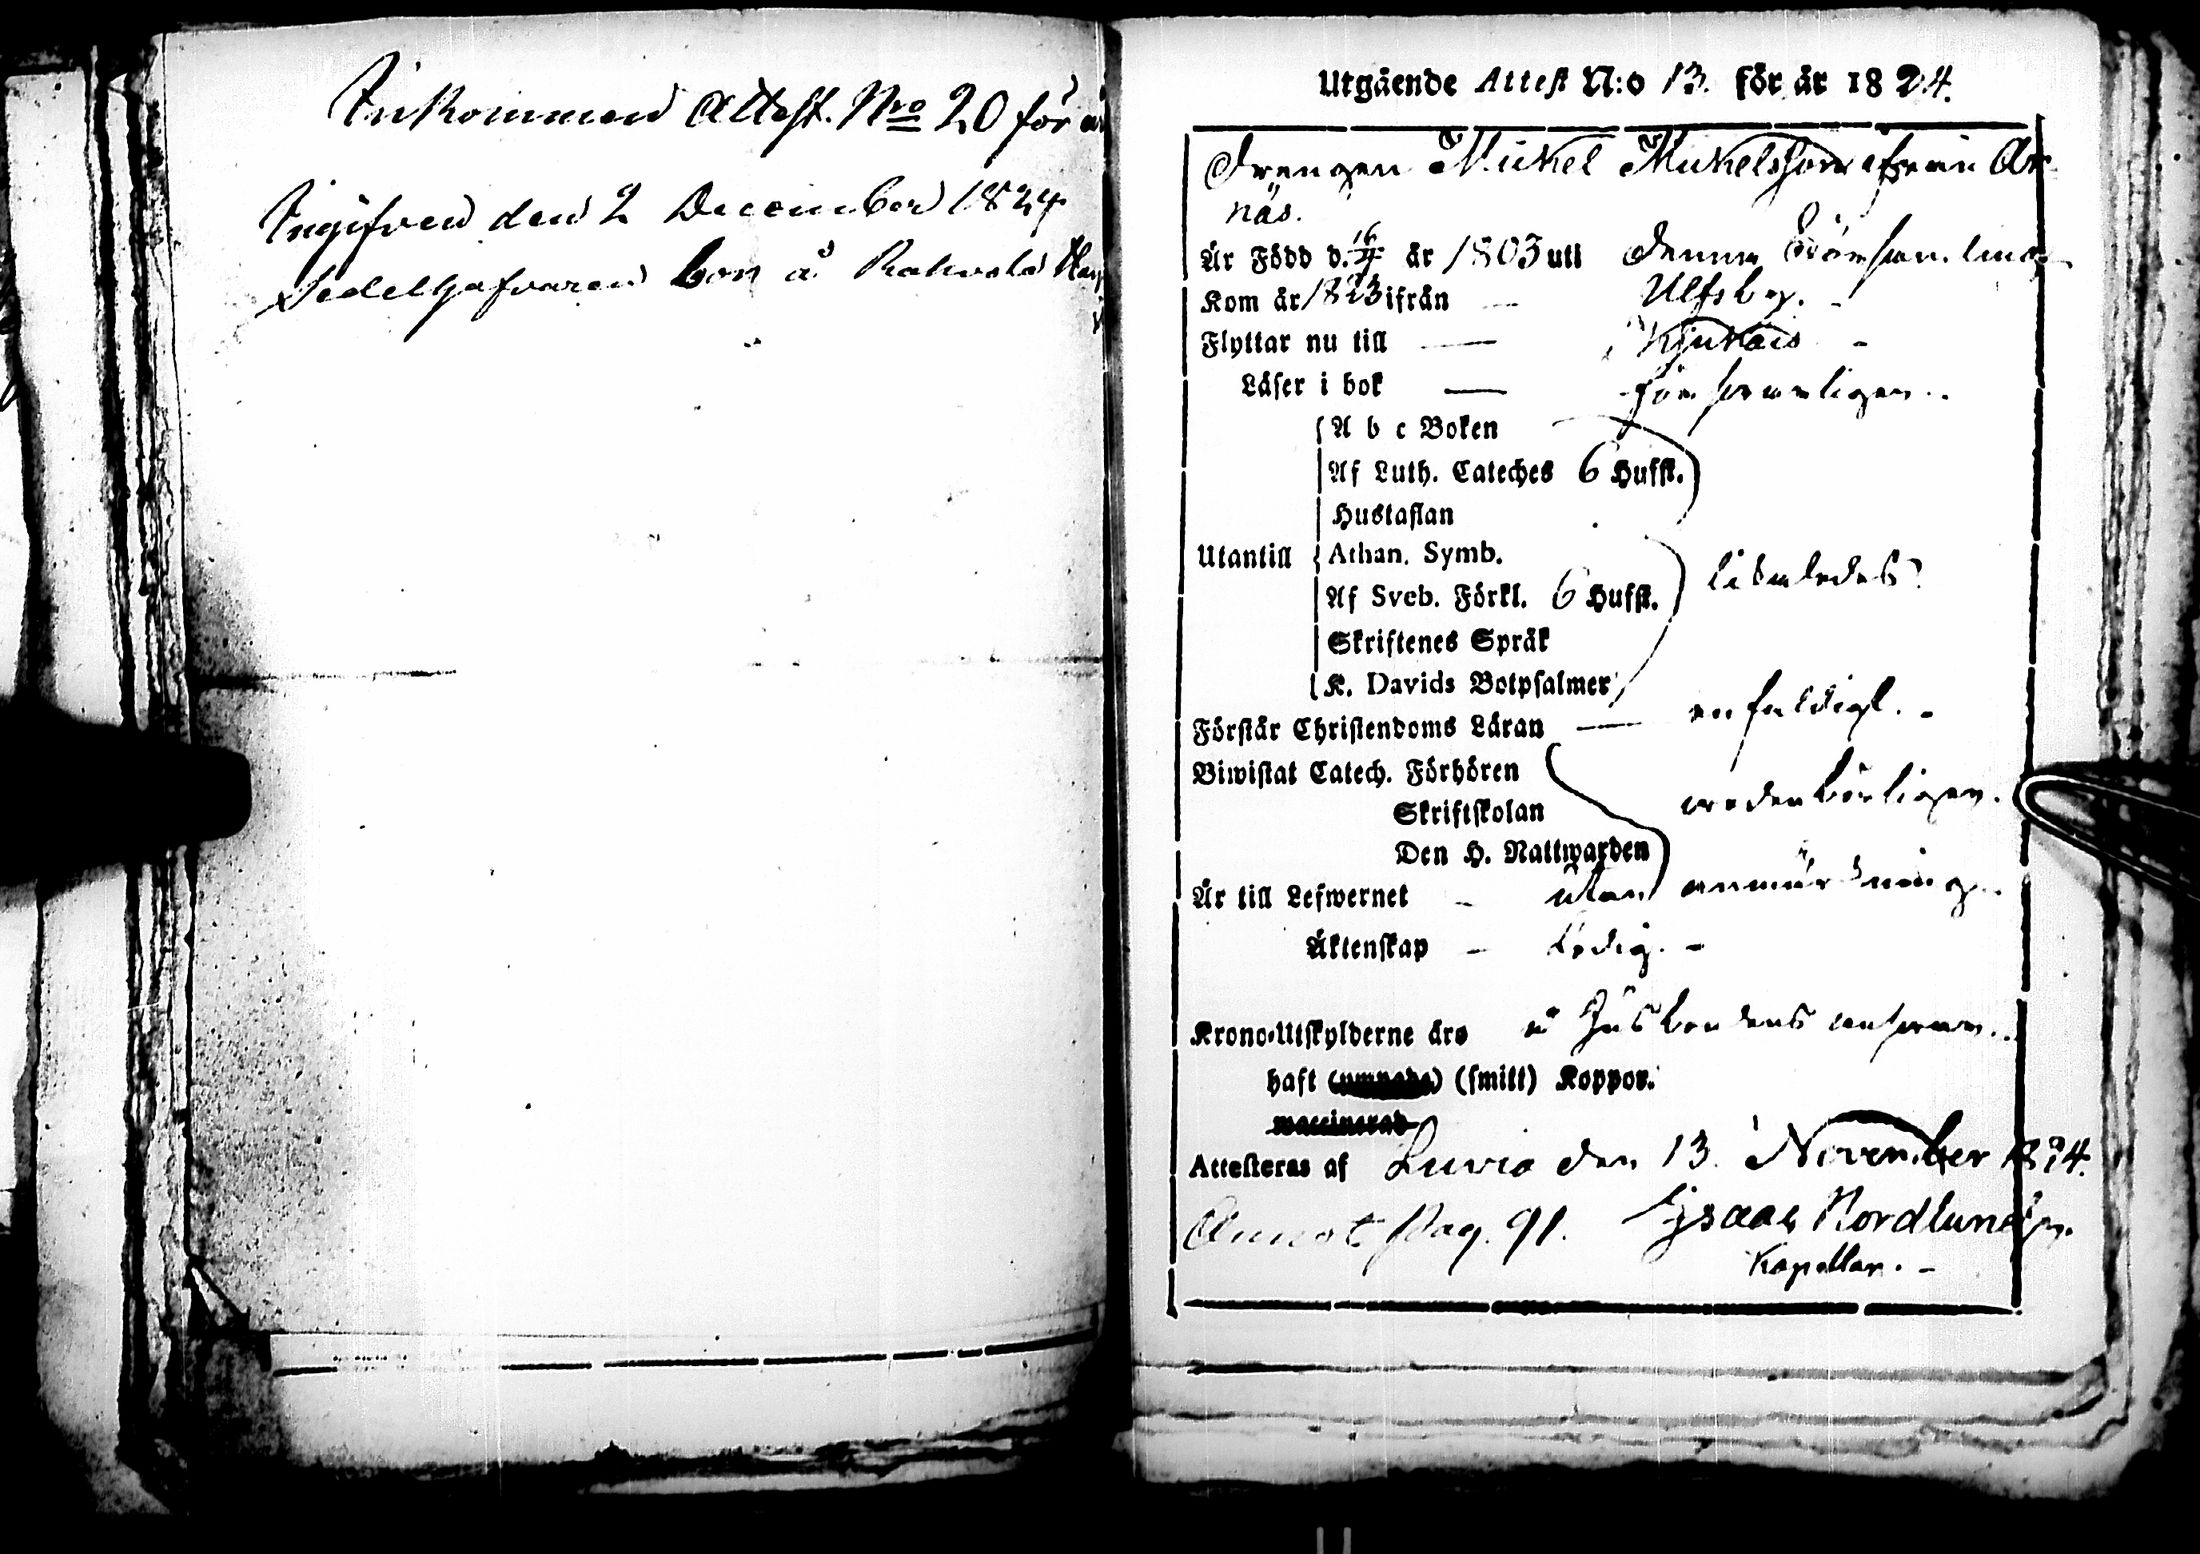 Inkommen Attest. Nro 20 för
Ingifven den 2 December 1824
Sedelhafvaren bor å
Utgående Attest N:o 13. för år 1824.
Drengen Mickel Mickelsson ifrån Ar-
näs.
Är Född d. 16/4 år 1803 uti denna Församling
Kom år 1823 ifrån — Ulfsby. -
Flyttar nu till — Kjukais -
Läser i bok — försvarligen..
A b c Boken
Af Luth. Cateches 6 Hufst.
Hustaflan
Utantill Athan. Symb. likaledes.
Af Sveb. Förkl. 6 Hufst.
Skriftenes Språk
K. Davids Botpsalmer
Förstår Christendoms Läran — enfaldigt. -
Biwistat Catech. Förhören
Skriftskolan wederbörligen.
Den H. Nattwarden
Är till Lefwernet - utan anmärkning.
Äktenskap - Ledig. -
Krono-Utskylderne äro å Husbondens ansvar..
haft (smitt) Koppor.
waccinerad
Attesteras af Luvia den 13. November 1824.
Annot. Pag. 91. Isaac Nordlund
Kapellan. -